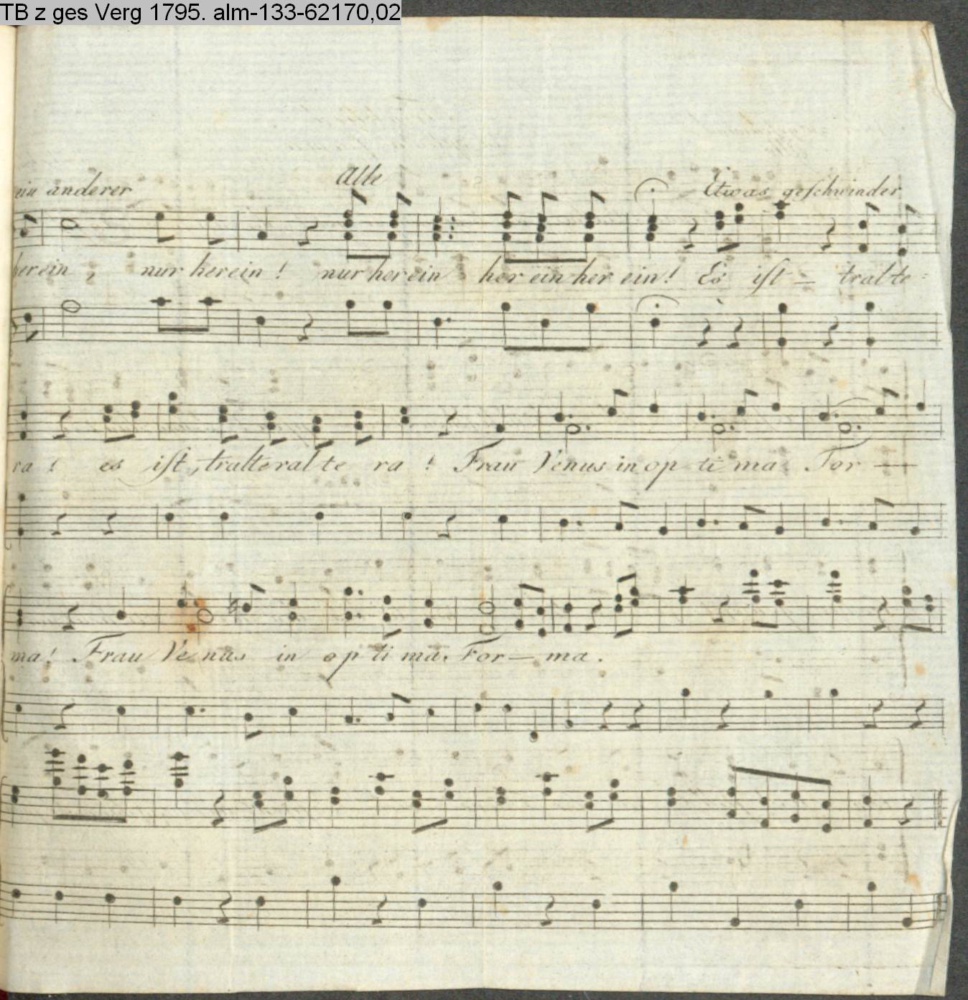 TB z ges Verg 1795. alm-133-62170,02
ein anderer Alle Etwas geschwinder
herein, nur herein! nur herein her ein her ein! Es ist — tralte:
ra! es ist, tralteralte ra! Frau Venus in op ti ma For —
ma! Frau Ve nus in op ti ma. For — ma.